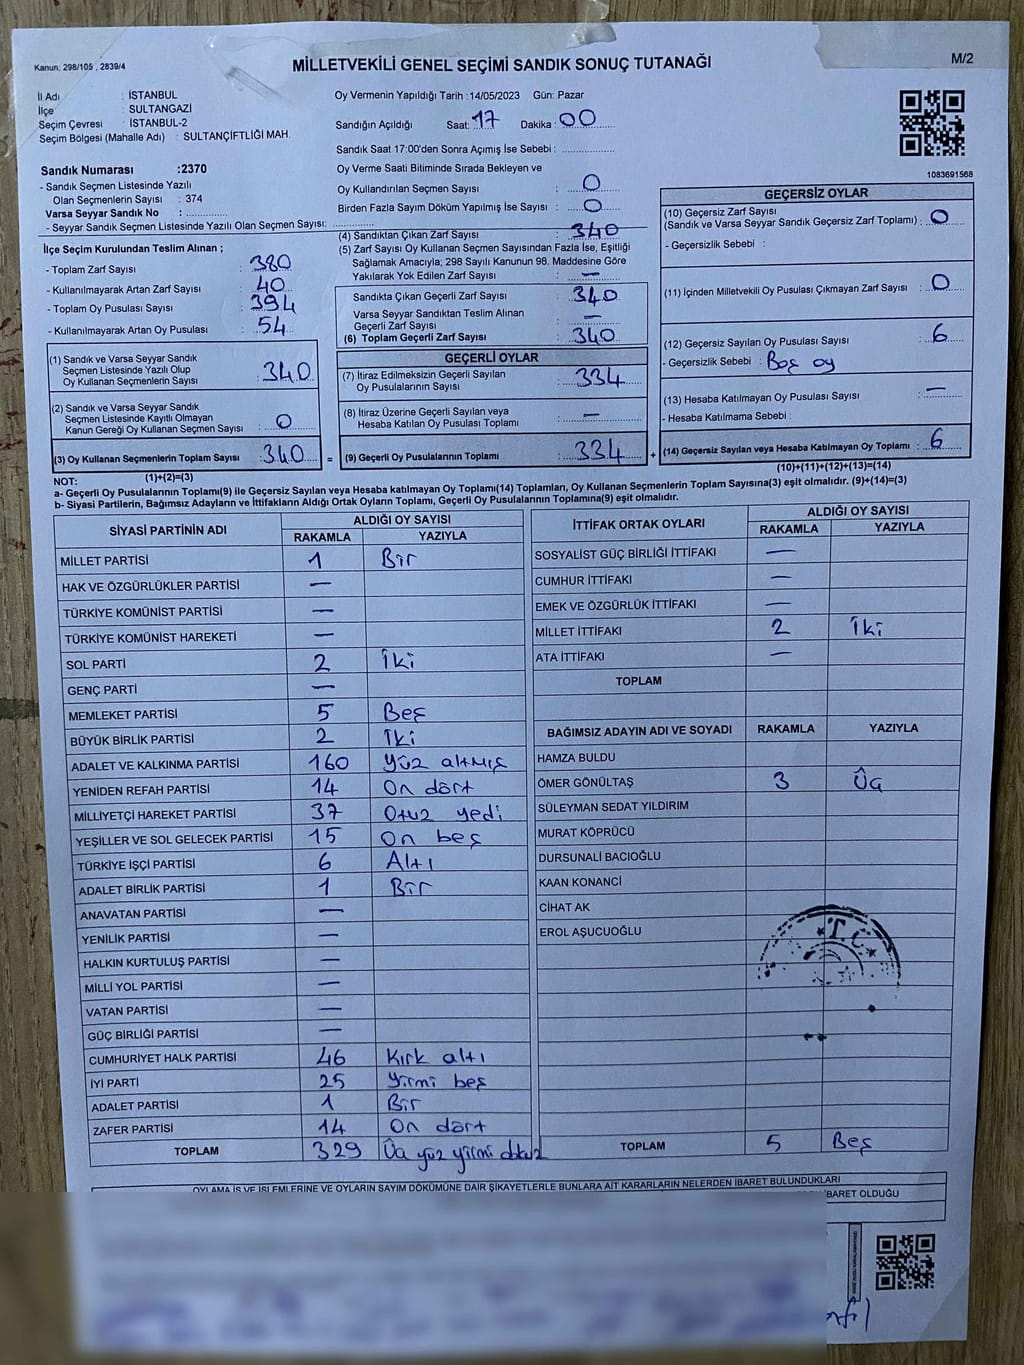 Kanun: 298/105 , 2839/4
MİLLETVEKİLİ GENEL SEÇİMİ SANDIK SONUÇ TUTANAĞI
M/2
İl Adı : İSTANBUL
İlçe : SULTANGAZİ
Seçim Çevresi : İSTANBUL-2
Seçim Bölgesi (Mahalle Adı) : SULTANÇİFTLİĞİ MAH.
Sandık Numarası :2370
- Sandık Seçmen Listesinde Yazılı
Olan Seçmenlerin Sayısı : 374
Varsa Seyyar Sandık No : ..............
- Seyyar Sandık Seçmen Listesinde Yazılı Olan Seçmen Sayısı: ..............
İlçe Seçim Kurulundan Teslim Alınan ;
- Toplam Zarf Sayısı : 380
- Kullanılmayarak Artan Zarf Sayısı : 40
- Toplam Oy Pusulası Sayısı : 394
- Kullanılmayarak Artan Oy Pusulası : 54
(1) Sandık ve Varsa Seyyar Sandık
Seçmen Listesinde Yazılı Olup
Oy Kullanan Seçmenlerin Sayısı : 340
(2) Sandık ve Varsa Seyyar Sandık
Seçmen Listesinde Kayıtlı Olmayan
Kanun Gereği Oy Kullanan Seçmen Sayısı : 0
(3) Oy Kullanan Seçmenlerin Toplam Sayısı : 340 =
(1)+(2)=(3)
Oy Vermenin Yapıldığı Tarih :14/05/2023 Gün: Pazar
Sandığın Açıldığı Saat: 17 Dakika : 00
Sandık Saat 17:00'den Sonra Açımış İse Sebebi : ..............
Oy Verme Saati Bitiminde Sırada Bekleyen ve
Oy Kullandırılan Seçmen Sayısı : 0
Birden Fazla Sayım Döküm Yapılmış İse Sayısı : 0
(4) Sandıktan Çıkan Zarf Sayısı : 340
(5) Zarf Sayısı Oy Kullanan Seçmen Sayısından Fazla İse, Eşitliği
Sağlamak Amacıyla; 298 Sayılı Kanunun 98. Maddesine Göre
Yakılarak Yok Edilen Zarf Sayısı : —
Sandıkta Çıkan Geçerli Zarf Sayısı : 340
Varsa Seyyar Sandıktan Teslim Alınan
Geçerli Zarf Sayısı : —
(6) Toplam Geçerli Zarf Sayısı : 340
GEÇERLİ OYLAR
(7) İtiraz Edilmeksizin Geçerli Sayılan
Oy Pusulalarının Sayısı : 334
(8) İtiraz Üzerine Geçerli Sayılan veya
Hesaba Katılan Oy Pusulası Toplamı : —
(9) Geçerli Oy Pusulalarının Toplamı : 334 +
1083691568
GEÇERSİZ OYLAR
(10) Geçersiz Zarf Sayısı
(Sandık ve Varsa Seyyar Sandık Geçersiz Zarf Toplamı) : 0
- Geçersizlik Sebebi :
(11) İçinden Milletvekili Oy Pusulası Çıkmayan Zarf Sayısı : 0
(12) Geçersiz Sayılan Oy Pusulası Sayısı : 6
- Geçersizlik Sebebi : Boş oy
(13) Hesaba Katılmayan Oy Pusulası Sayısı : —
- Hesaba Katılmama Sebebi :
(14) Geçersiz Sayılan veya Hesaba Katılmayan Oy Toplamı : 6
(10)+(11)+(12)+(13)=(14)
NOT:
a- Geçerli Oy Pusulalarının Toplamı(9) ile Geçersiz Sayılan veya Hesaba katılmayan Oy Toplamı(14) Toplamları, Oy Kullanan Seçmenlerin Toplam Sayısına(3) eşit olmalıdır. (9)+(14)=(3)
b- Siyasi Partilerin, Bağımsız Adayların ve İttifakların Aldığı Oyların Ortak Oyların Toplamı, Geçerli Oy Pusulalarının Toplamına(9) eşit olmalıdır.
SİYASİ PARTİNİN ADI ALDIĞI OY SAYISI
RAKAMLA YAZIYLA
MİLLET PARTİSİ 1 Bir
HAK VE ÖZGÜRLÜKLER PARTİSİ —
TÜRKİYE KOMÜNİST PARTİSİ —
TÜRKİYE KOMÜNİST HAREKETİ —
SOL PARTİ 2 İki
GENÇ PARTİ —
MEMLEKET PARTİSİ 5 Beş
BÜYÜK BİRLİK PARTİSİ 2 İki
ADALET VE KALKINMA PARTİSİ 160 Yüz altmış
YENİDEN REFAH PARTİSİ 14 On dört
MİLLİYETÇİ HAREKET PARTİSİ 37 Otuz yedi
YEŞİLLER VE SOL GELECEK PARTİSİ 15 On beş
TÜRKİYE İŞÇİ PARTİSİ 6 Altı
ADALET BİRLİK PARTİSİ 1 Bir
ANAVATAN PARTİSİ —
YENİLİK PARTİSİ —
HALKIN KURTULUŞ PARTİSİ —
MİLLİ YOL PARTİSİ —
VATAN PARTİSİ —
GÜÇ BİRLİĞİ PARTİSİ —
CUMHURİYET HALK PARTİSİ 46 Kırk altı
İYİ PARTİ 25 Yirmi beş
ADALET PARTİSİ 1 Bir
ZAFER PARTİSİ 14 On dört
TOPLAM 329 Üç yüz yirmi dokuz
İTTİFAK ORTAK OYLARI ALDIĞI OY SAYISI
RAKAMLA YAZIYLA
SOSYALİST GÜÇ BİRLİĞİ İTTİFAKI —
CUMHUR İTTİFAKI —
EMEK VE ÖZGÜRLÜK İTTİFAKI —
MİLLET İTTİFAKI 2 İki
ATA İTTİFAKI —
TOPLAM
BAĞIMSIZ ADAYIN ADI VE SOYADI RAKAMLA YAZIYLA
HAMZA BULDU
ÖMER GÖNÜLTAŞ 3 Üç
SÜLEYMAN SEDAT YILDIRIM
MURAT KÖPRÜCÜ
DURSUNALİ BACIOĞLU
KAAN KONANCİ
CİHAT AK
EROL AŞUCUOĞLU
T.C.
TOPLAM 5 Beş
OYLAMA İŞ VE İŞLEMLERİNE VE OYLARIN SAYIM DÖKÜMÜNE DAİR ŞİKAYETLERLE BUNLARA AİT KARARLARIN NELERDEN İBARET BULUNDUKLARI
İBARET OLDUĞU